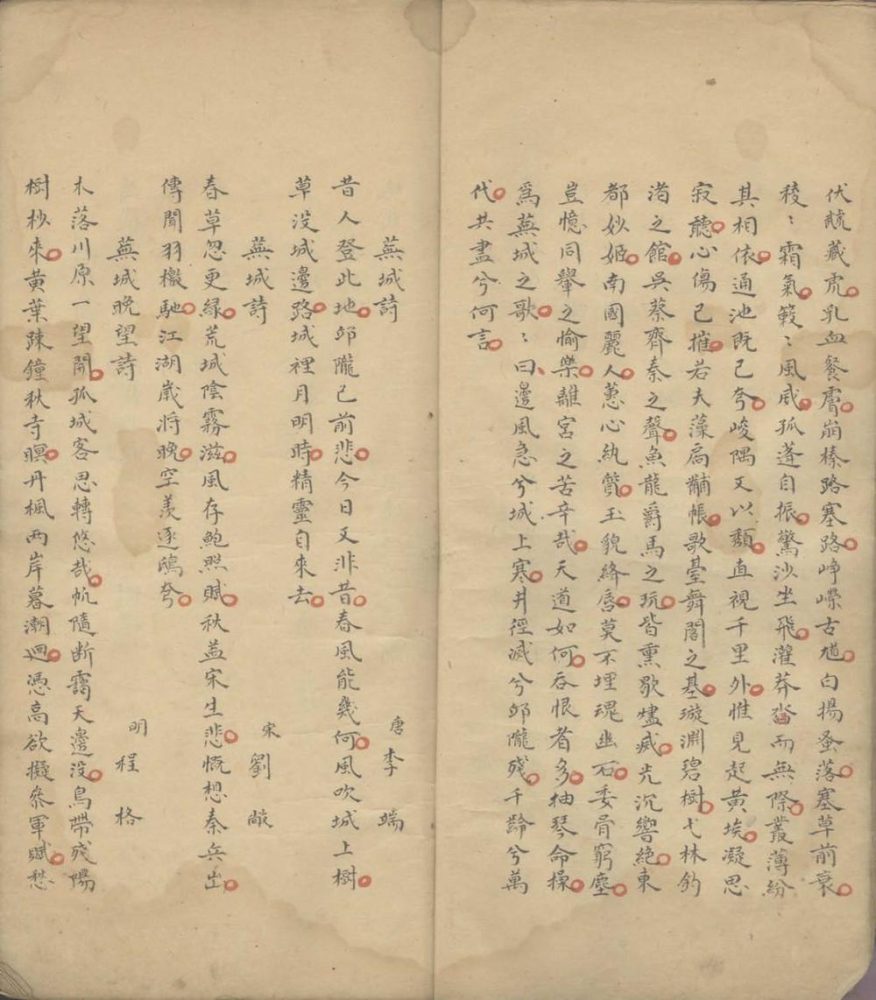 伏虣藏虎乳血餐膚崩榛路塞路崢嶸古馗白揚蚤落塞草前衰
稜〻霜氣簌〻風威孤蓬自振驚沙坐飛灌莽杳而無際叢薄紛
其相依通池既已夸峻隅又以頹直視千里外惟見起黃埃凝思
寂聽心傷已摧若夫藻扃黼帳歌臺舞閣之基璇淵碧樹弋林釣
渚之館吳蔡齊秦之聲魚龍爵馬之玩皆熏歇燼滅光沉響絶東
都妙姬南國麗人蕙心紈質玉貌絳唇莫不埋瑰幽石委骨窮塵
豈憶同轝之愉樂離宮之苦辛哉天道如何吞恨者多抽琴命操
爲蕪城之歌〻曰邊風急兮城上寒井徑滅兮邱隴殘千齡兮萬
代共盡兮何言
蕪城詩 唐 李端
昔人登此地邱隴已前悲今日又非昔春風能幾何風吹城上樹
草没城邊路城裡月明時精靈自來去
蕪城詩 宋 劉敞
春草忽更緑荒城陰霧滋風存鮑照賦秋益宋生悲慨想秦兵出
傳聞羽檄馳江湖歲將晚空羨逐鴟夸
蕪城晚望詩 明 程格
木落川原一望開孤城客思轉悠哉帆隨斷靄天邊没鳥帶殘陽
樹杪來黃葉疎鐘秋寺暝丹楓兩岸暮潮迴憑高欲擬參軍賦愁